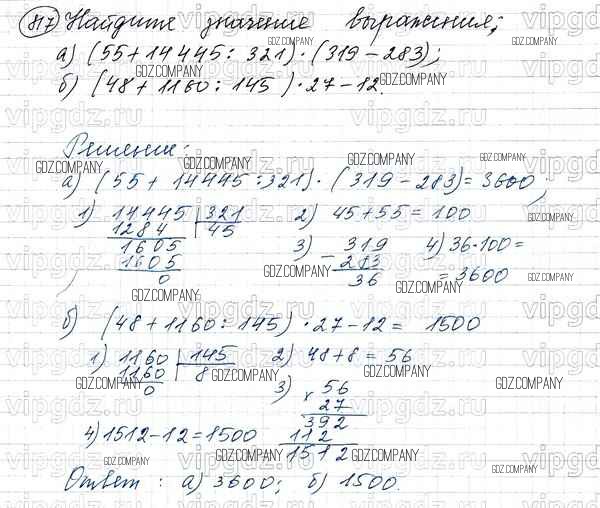 817 Найдите значение выражения;
а) (55+14445: 321)·(319-283);
б) (48+1160: 145 )·27-12.
Решение:
а) (55+ 14445:321)· (319-283)=3600;
1) 14445 321
1284 45
1605
1605
0
2) 45+55=100
3) 319
- 283
36
4) 36·100=
= 3600
б) (48+1160: 145) ·27-12= 1500
1) 1160 145
1160 8
0
2) 48+8=56
3) 56
× 27
392
112
1512
4) 1512-12=1500
Ответ : а) 3600; б) 1500.
vipgdz.ru
GDZ.COMPANY